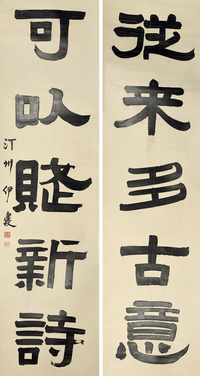 從来多古意
可以賦新詩
汀州伊